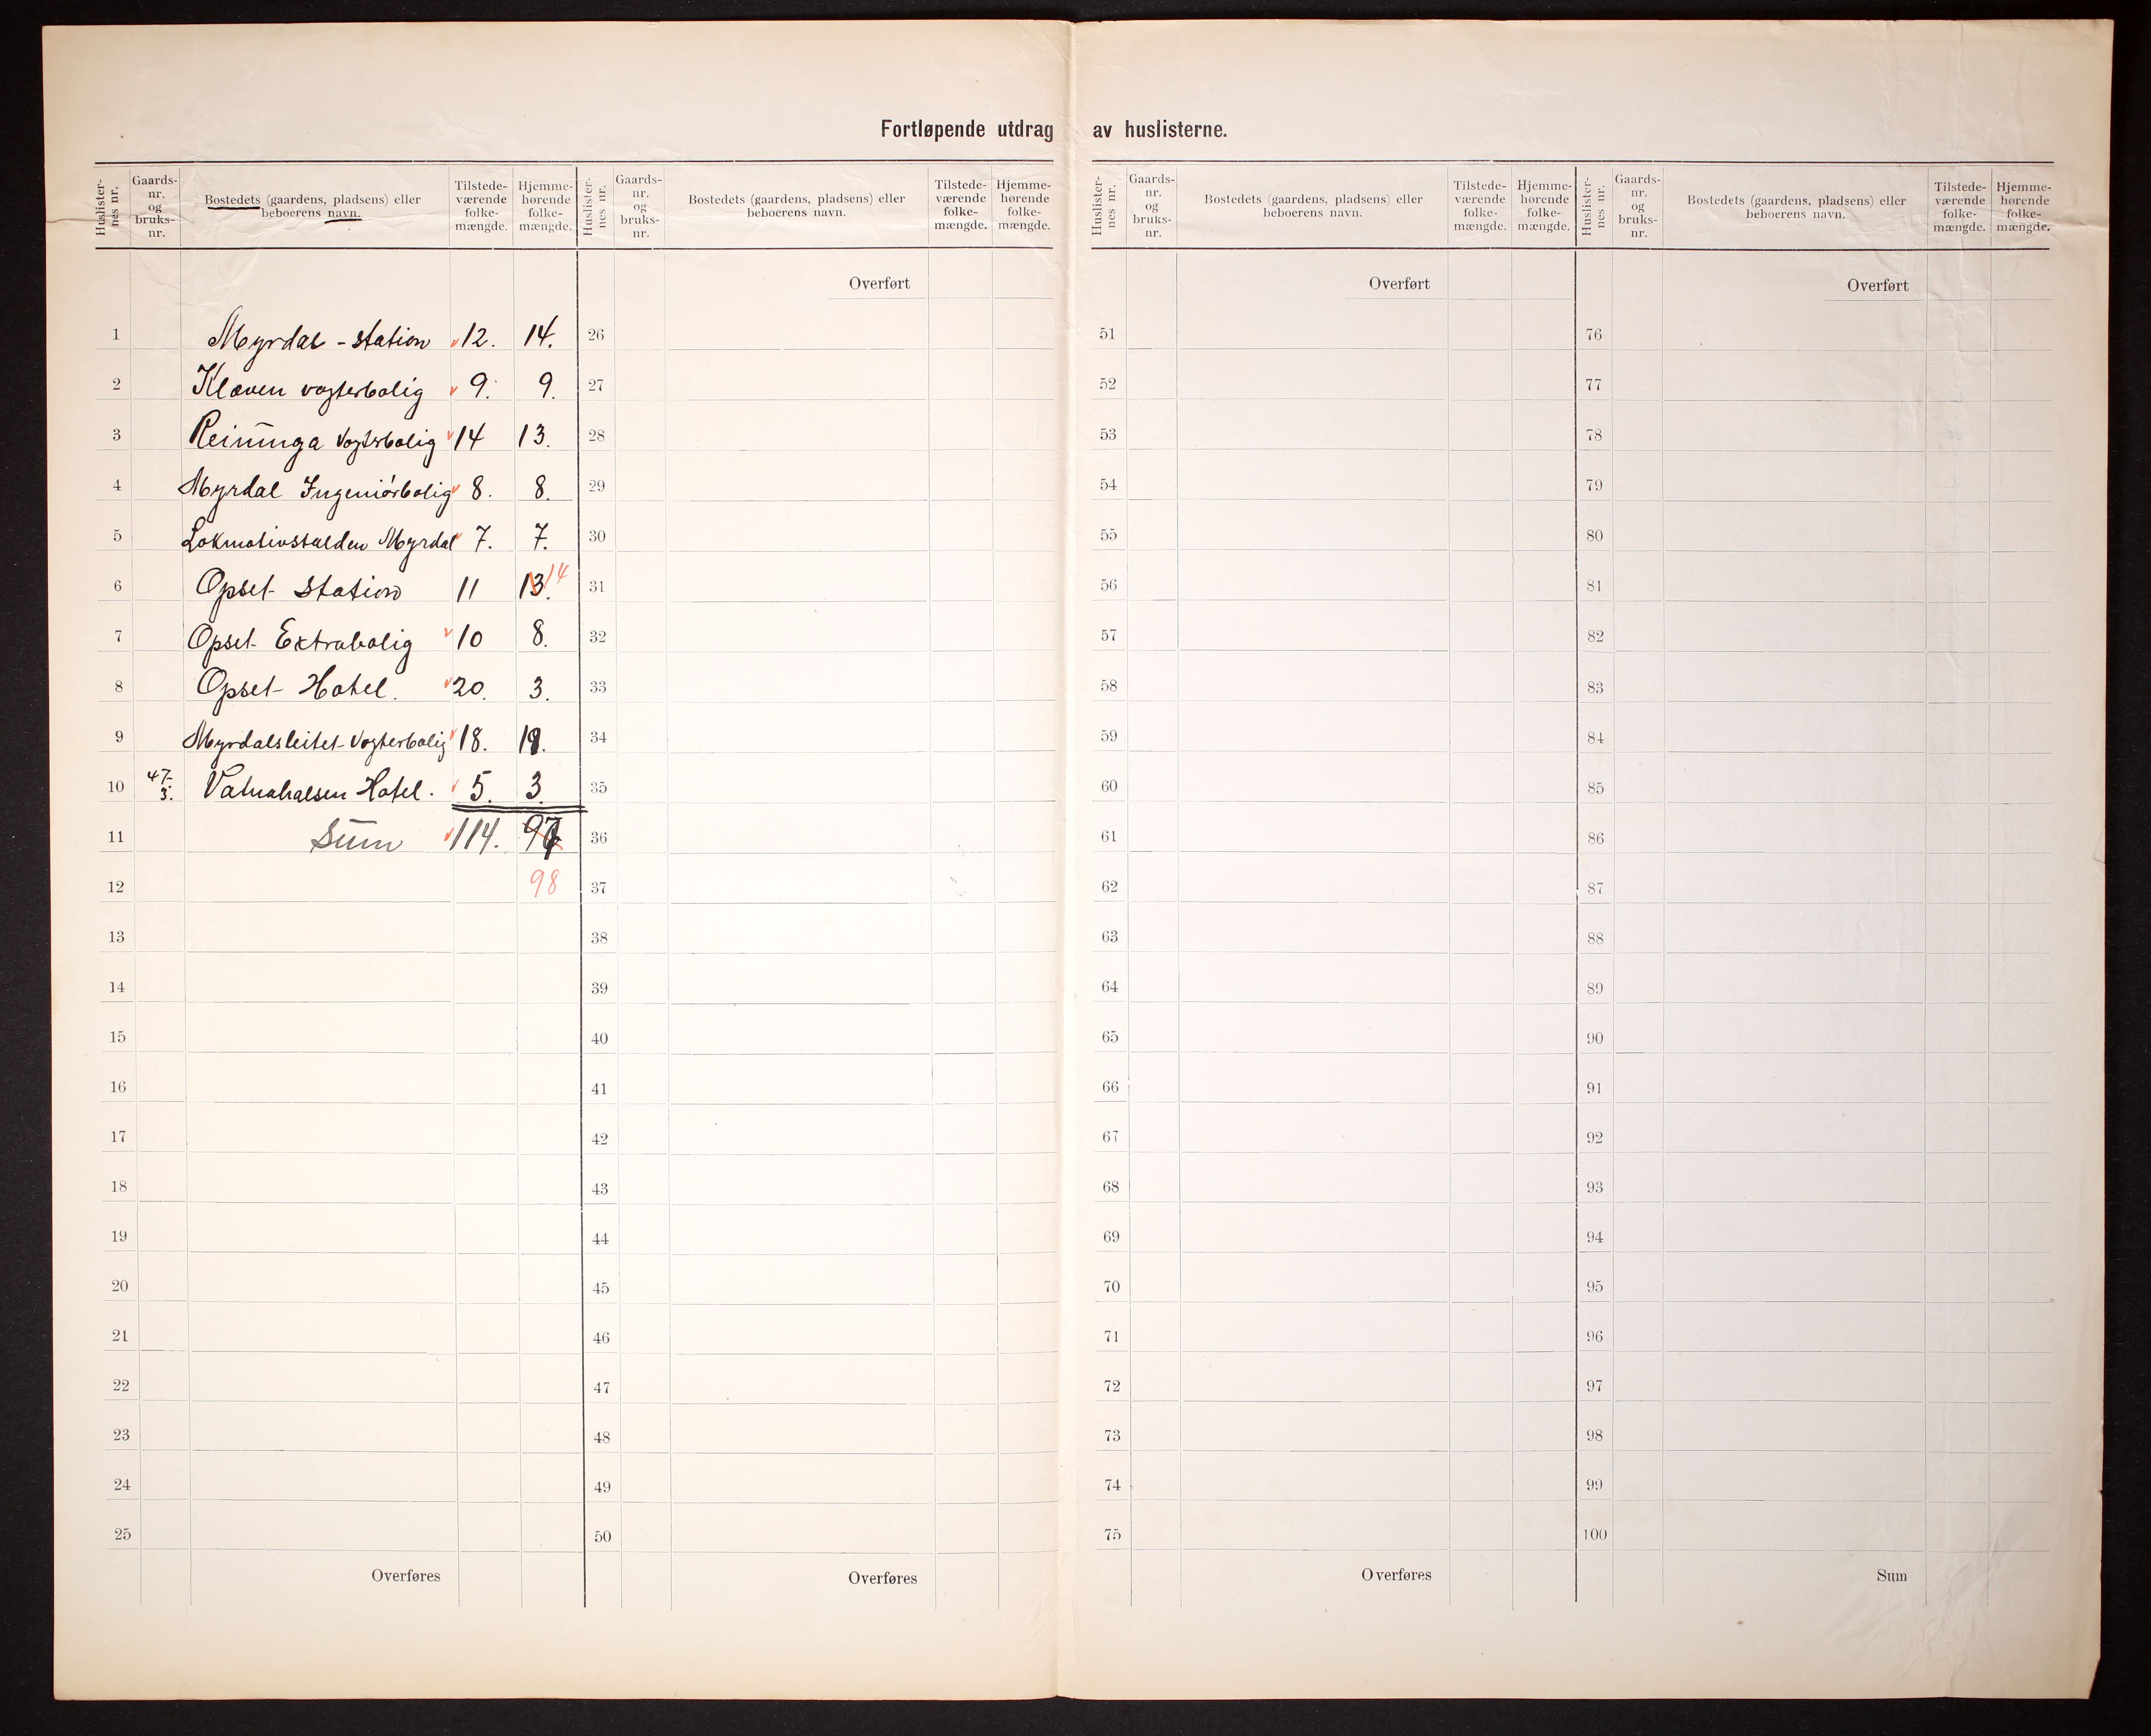 Fortløpende utdrag av huslisterne.
Huslisternes nr. Gaards-nr. og bruks-nr. Bostedets (gaardens, pladsens) eller beboerens navn. Tilstede-værende folke-mængde. Hjemme-hørende folke-mængde.
1 Myrdal - station 12. 14.
2 Klæven vogterbolig 9. 9.
3 Reinunga Vogterbolig 14 13.
4 Myrdal Ingeniörbolig 8. 8.
5 Lokmotivstalden Myrdal 7. 7.
6 Opset station 11 13. 14
7 Opset Extrabolig 10 8.
8 Opset Hotel. 20. 3.
9 Myrdalsleitet Vogterbolig 18. 19.
10 47-3. Vatnahalsen Hotel. 5. 3
11 Sum 114. 97
12 98
13
14
15
16
17
18
19
20
21
22
23
24
25
Overføres
Huslisternes nr. Gaards-nr. og bruks-nr. Bostedets (gaardens, pladsens) eller beboerens navn. Tilstede-værende folke-mængde. Hjemme-hørende folke-mængde.
Overført
26
27
28
29
30
31
32
33
34
35
36
37
38
39
40
41
42
43
44
45
46
47
48
49
50
Overføres
Huslisternes nr. Gaards-nr. og bruks-nr. Bostedets (gaardens, pladsens) eller beboerens navn. Tilstede-værende folke-mængde. Hjemme-hørende folke-mængde.
Overført
51
52
53
54
55
56
57
58
59
60
61
62
63
64
65
66
67
68
69
70
71
72
73
74
75
Overføres
Huslisternes nr. Gaards-nr. og bruks-nr. Bostedets (gaardens, pladsens) eller beboerens navn. Tilstede-værende folke-mængde. Hjemme-hørende folke-mængde.
Overført
76
77
78
79
80
81
82
83
84
85
86
87
88
89
90
91
92
93
94
95
96
97
98
99
100
Sum